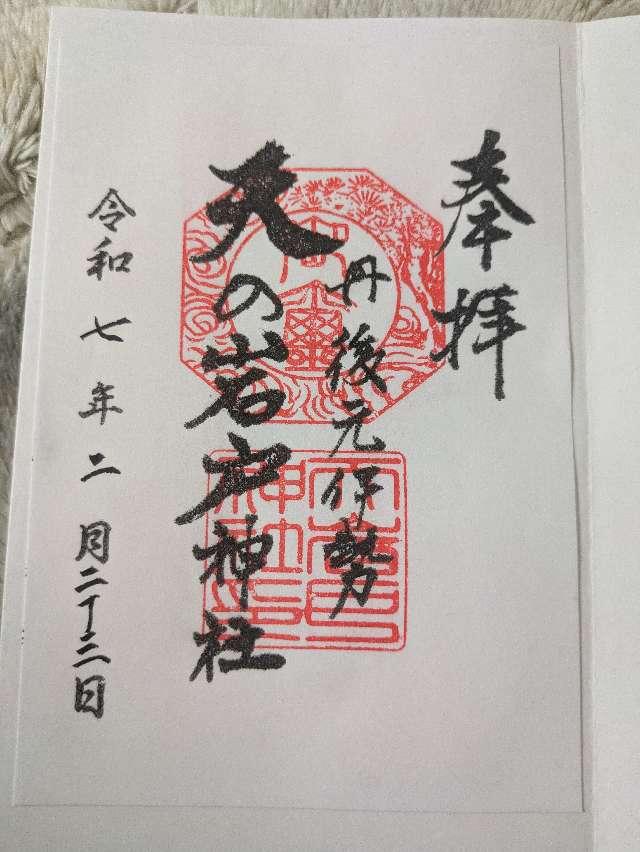 奉拝
丹後元伊勢
天の岩戸神社
令和七年二月二十二日